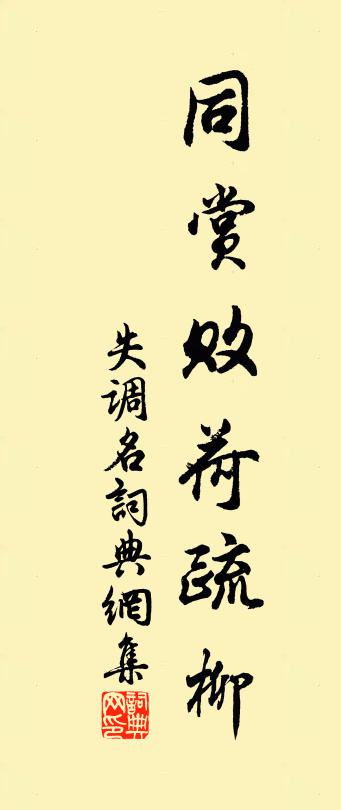 同賞敗荷疏柳
失调名詞典網集
詞典網印